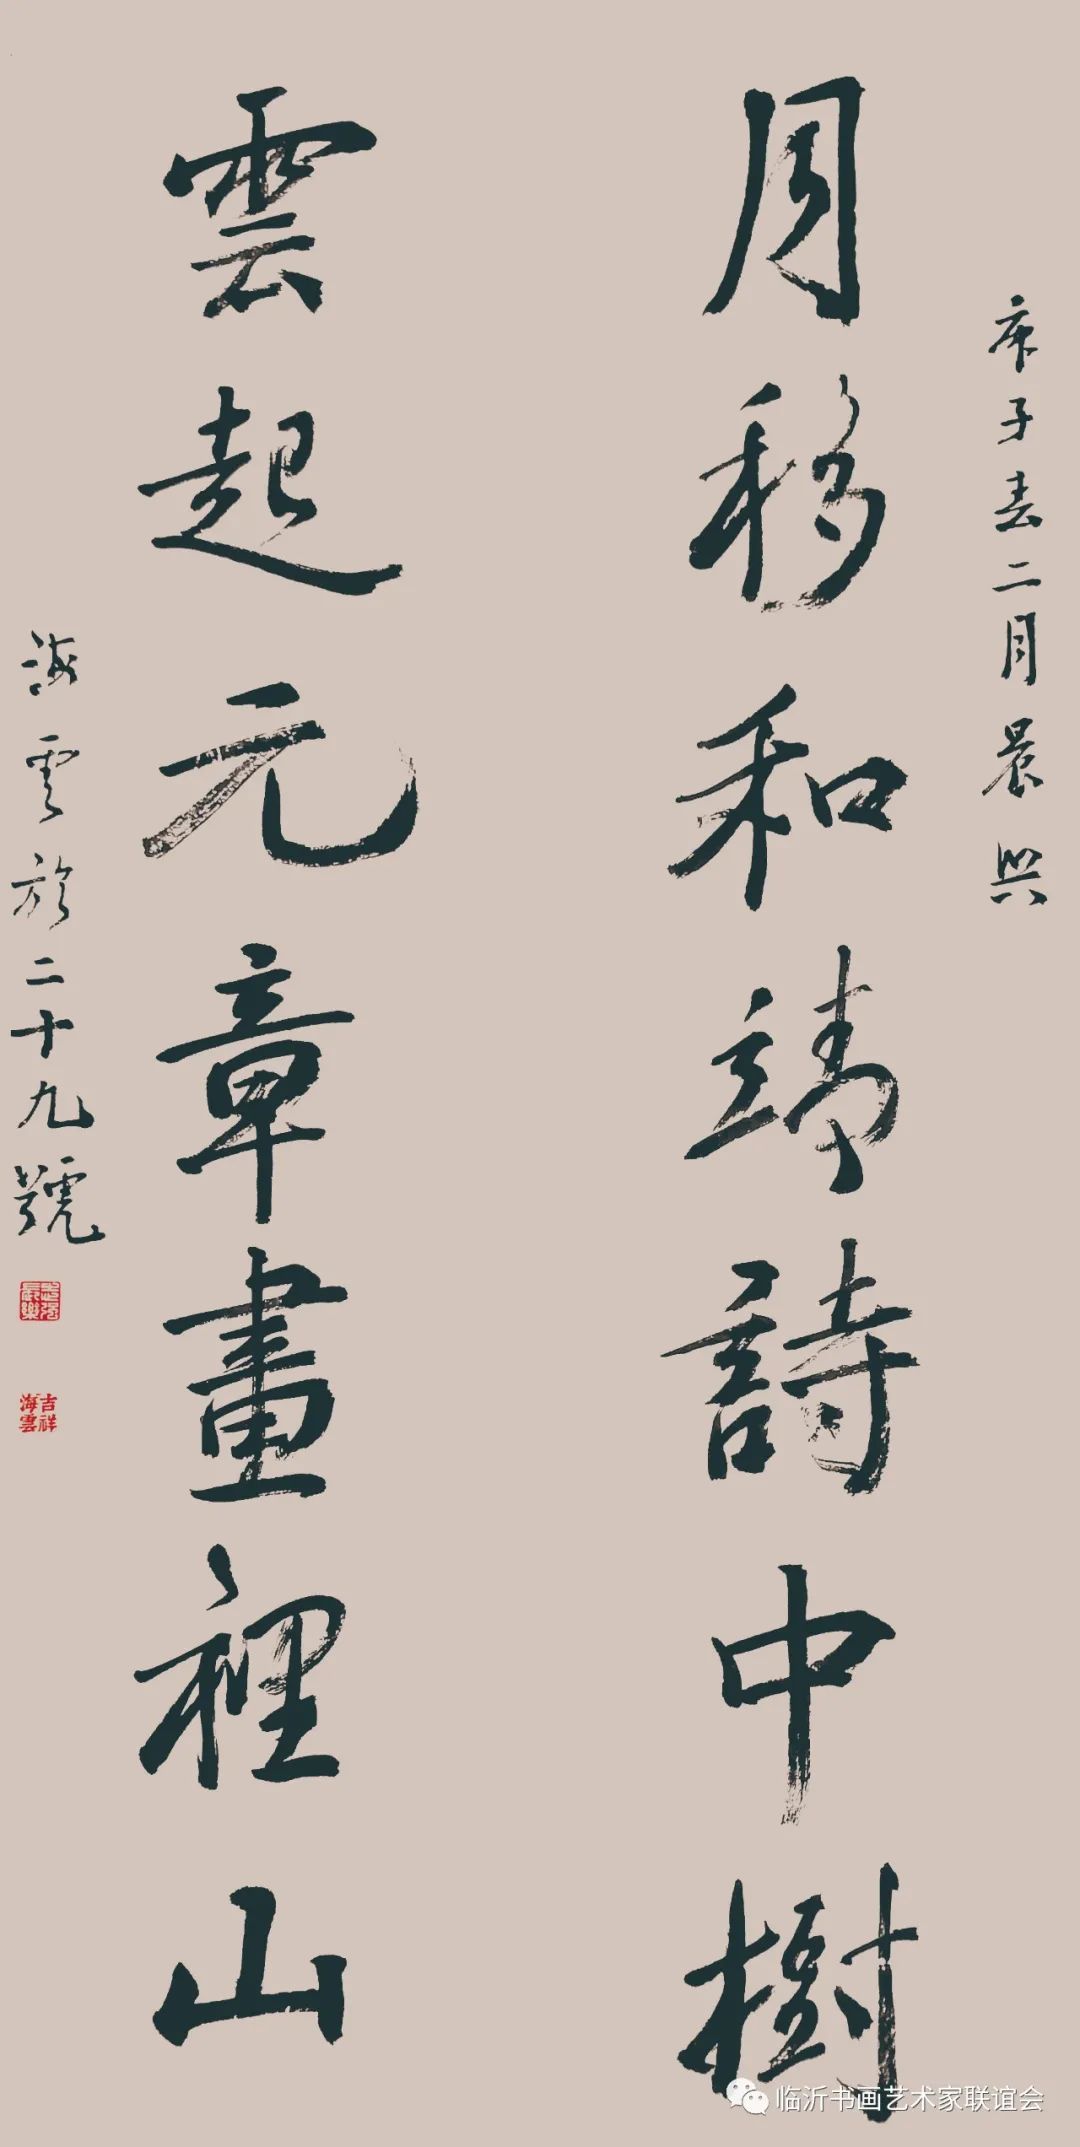 庚子春二月晨興
月移和靖詩中樹
雲起元章畫裡山
海雲於二十九號
吉祥
海雲
临沂书画艺术家联谊会